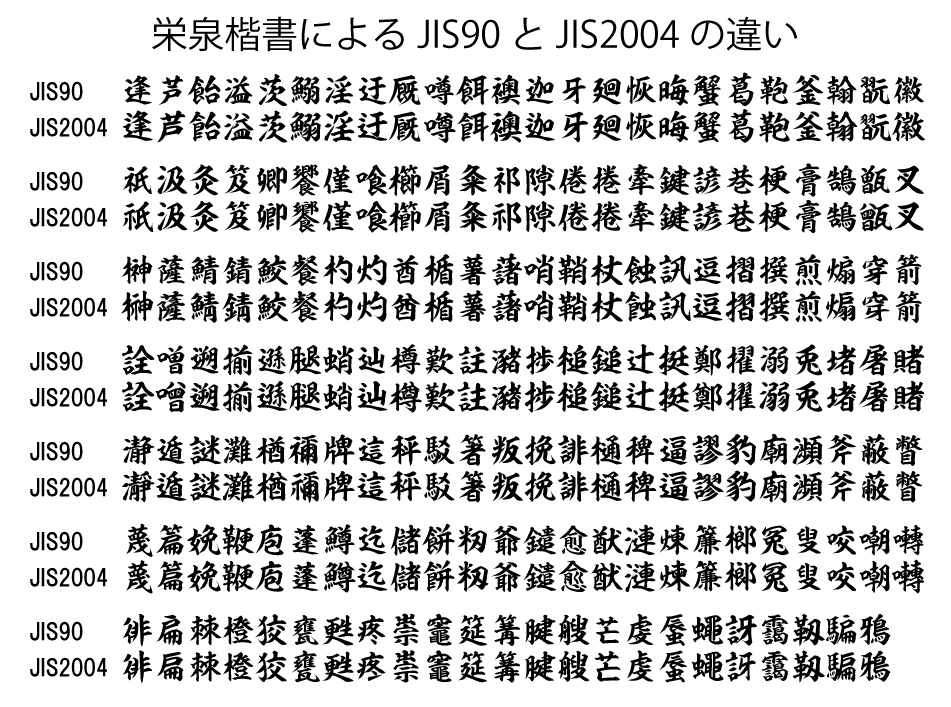 栄泉楷書による JIS90 と JIS2004 の違い
JIS90 逢芦飴溢茨鰯淫迂厩噂餌襖迦牙廻恢晦蟹葛鞄釜翰翫徽
JIS2004 逢芦飴溢茨鰯淫迂厩噂餌襖迦牙廻恢晦蟹葛鞄釜翰翫徽
JIS90 祇汲灸笈卿饗僅喰櫛屑粂祁隙倦捲牽鍵諺巷梗膏鵠甑叉
JIS2004 祇汲灸笈卿饗僅喰櫛屑粂祁隙倦捲牽鍵諺巷梗膏鵠甑叉
JIS90 榊薩鯖錆鮫餐杓灼酋楯薯藷哨鞘杖蝕訊逗摺撰煎煽穿箭
JIS2004 榊薩鯖錆鮫餐杓灼酋楯薯藷哨鞘杖蝕訊逗摺撰煎煽穿箭
JIS90 詮噌遡揃遜腿蛸辿樽歎註瀦捗槌鎚辻挺鄭擢溺兎堵屠賭
JIS2004 詮噌遡揃遜腿蛸辿樽歎註瀦捗槌鎚辻挺鄭擢溺兎堵屠賭
JIS90 瀞遁謎灘楢禰牌這秤駁箸叛挽誹樋稗逼謬豹廟瀕斧蔽瞥
JIS2004 瀞遁謎灘楢禰牌這秤駁箸叛挽誹樋稗逼謬豹廟瀕斧蔽瞥
JIS90 蔑篇娩鞭庖蓬鱒迄儲餅籾爺鑓愈猷漣煉簾榔冤叟咬嘲囀
JIS2004 蔑篇娩鞭庖蓬鱒迄儲餅籾爺鑓愈猷漣煉簾榔冤叟咬嘲囀
JIS90 徘扁棘橙狡甕甦疼祟竈筵篝腱艘芒虔蜃蠅訝靄靱騙鴉
JIS2004 徘扁棘橙狡甕甦疼祟竈筵篝腱艘芒虔蜃蠅訝靄靱騙鴉